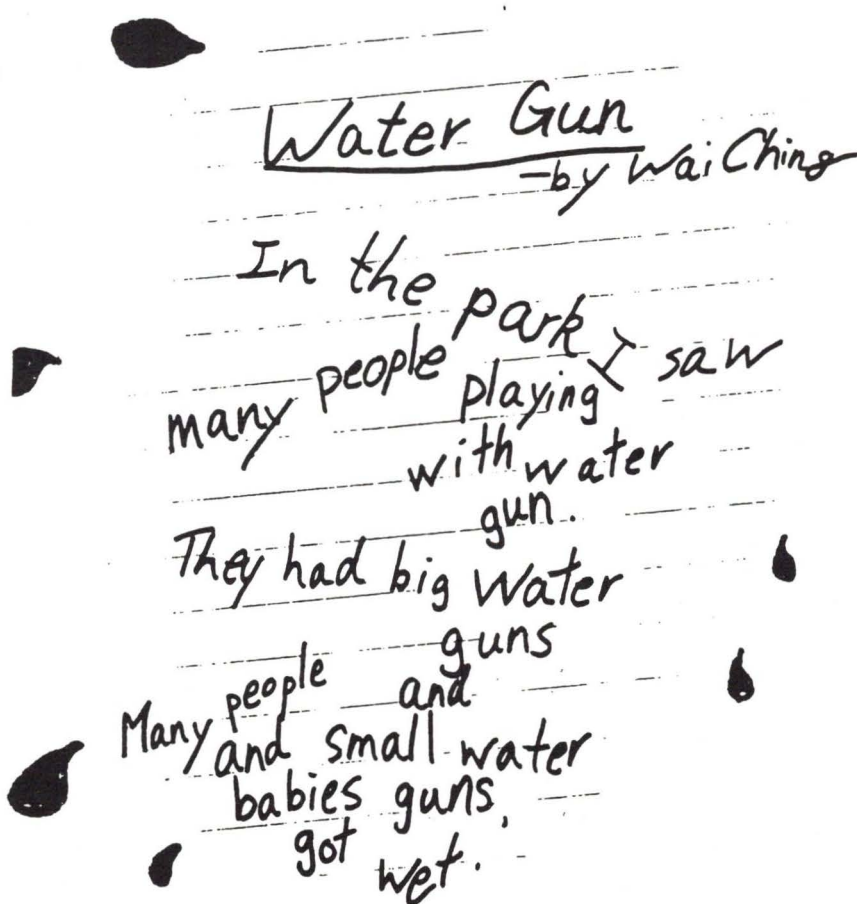 Water Gun
-by Wai Ching
In the park I saw
many people playing
with water
gun.
They had big water
guns
and
small water
guns,
Many people
and
babies
got
wet.